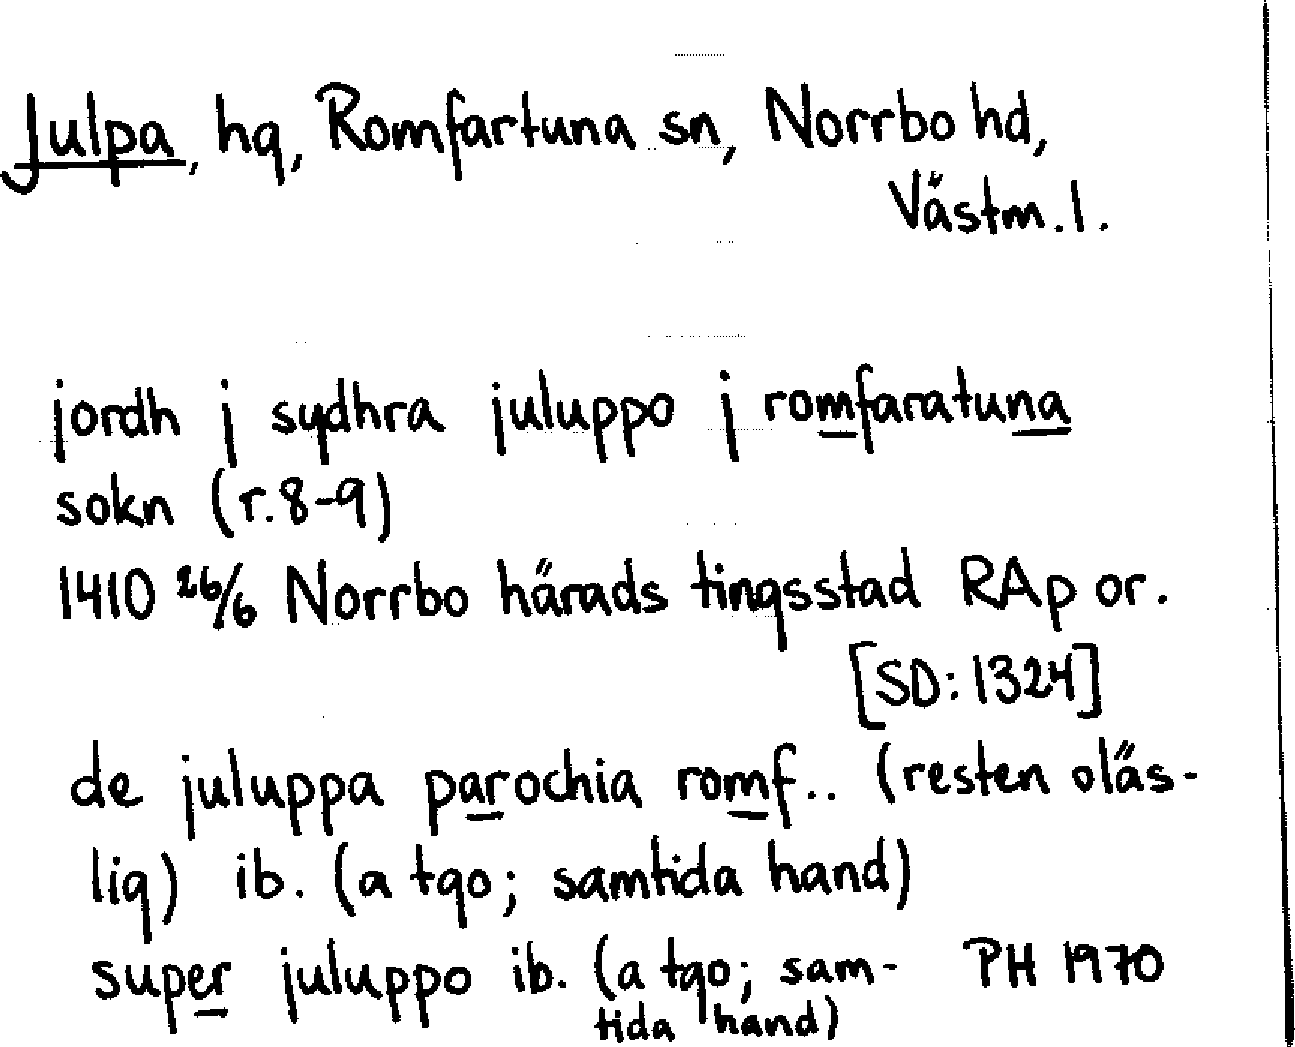 Julpa, hg, Romfartuna sn, Norrbo hd,
Västm. l.
jordh j sydhra juluppo j romfaratuna
sokn (r. 8-9)
1410 26/6 Norrbo härads tingsstad RAp or.
[SD: 1324]
de juluppa parochia romf.. (resten oläs-
lig) ib. (a tgo; samtida hand)
super juluppo ib. (a tgo; sam-
tida hand)
PH 1970